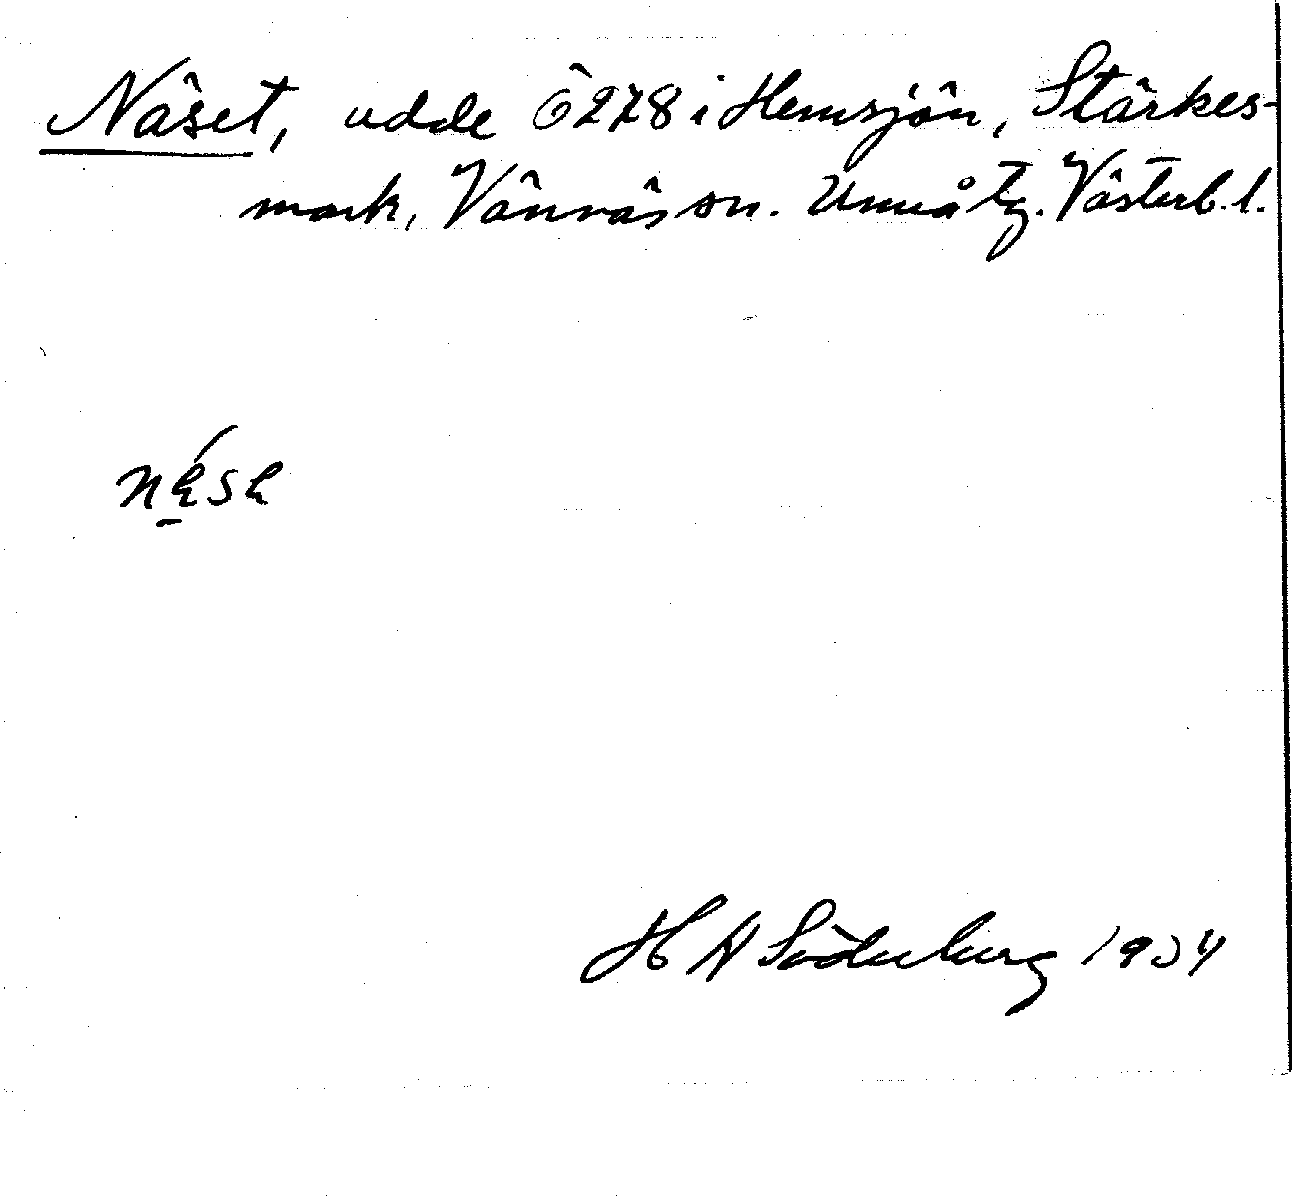 Näset, udde Ö278 i Hemsjön, Stärkes-
mark, Vännäs sn. Umeå tg. Västerb. l.
H A Söderberg 1934